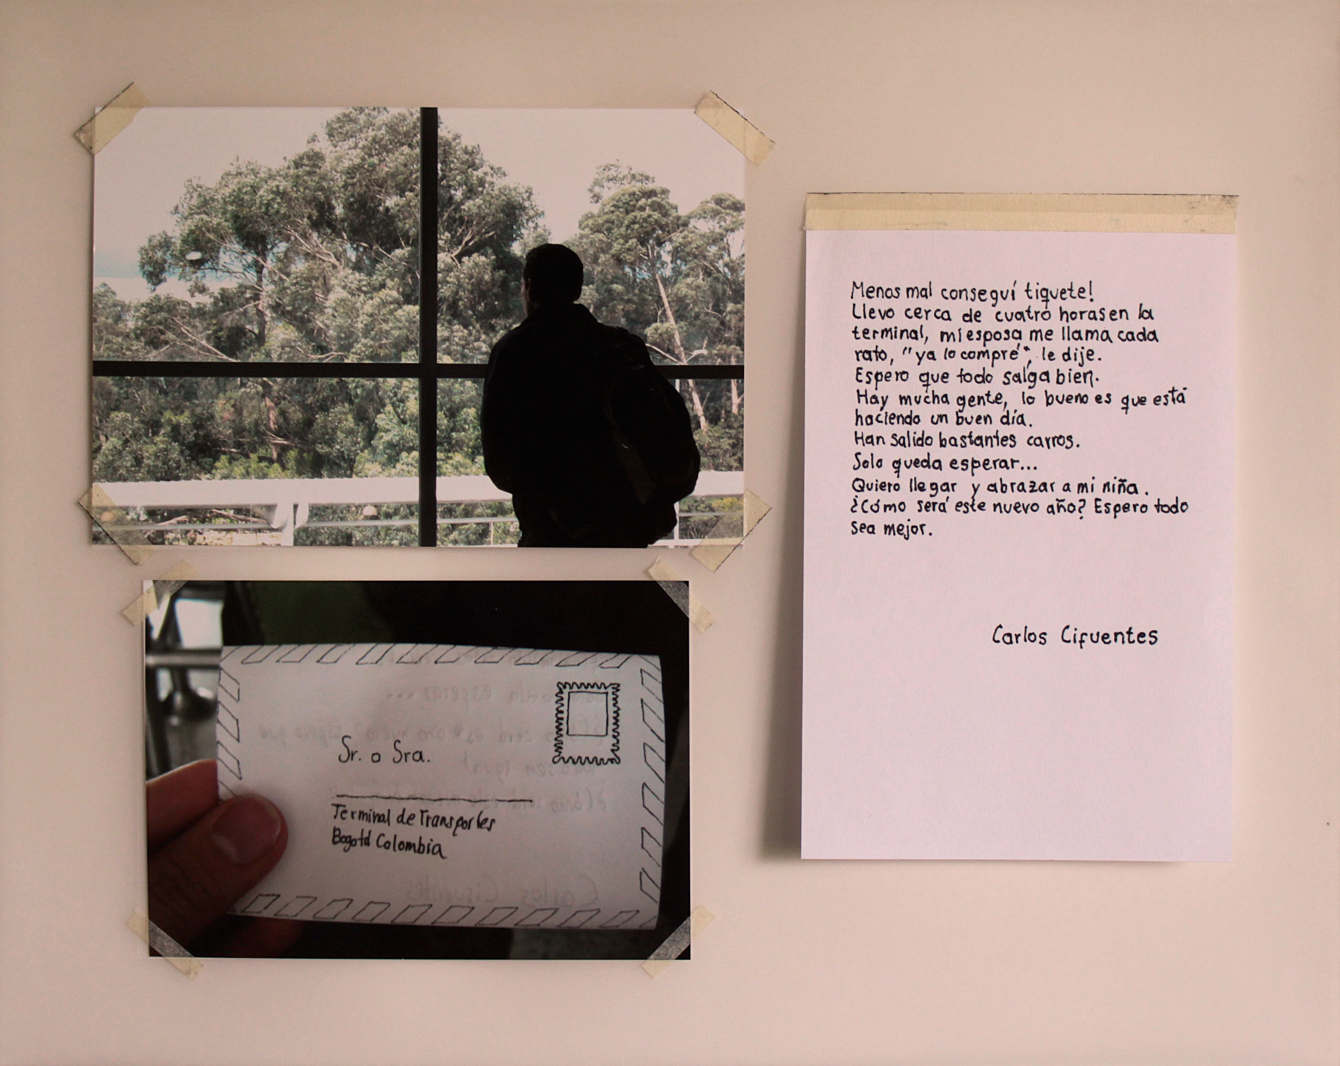 Menos mal conseguí tiquete!
Llevo cerca de cuatro horas en la
terminal, mi esposa me llama cada
rato, "ya lo compré", le dije.
Espero que todo salga bien.
Hay mucha gente, lo bueno es que está
haciendo un buen día.
Han salido bastantes carros.
Solo queda esperar...
Quiero llegar y abrazar a mi niña.
¿Cómo será este nuevo año? Espero todo
sea mejor.
Carlos Cifuentes
Sr. o Sra.
Terminal de Transportes
Bogotá Colombia